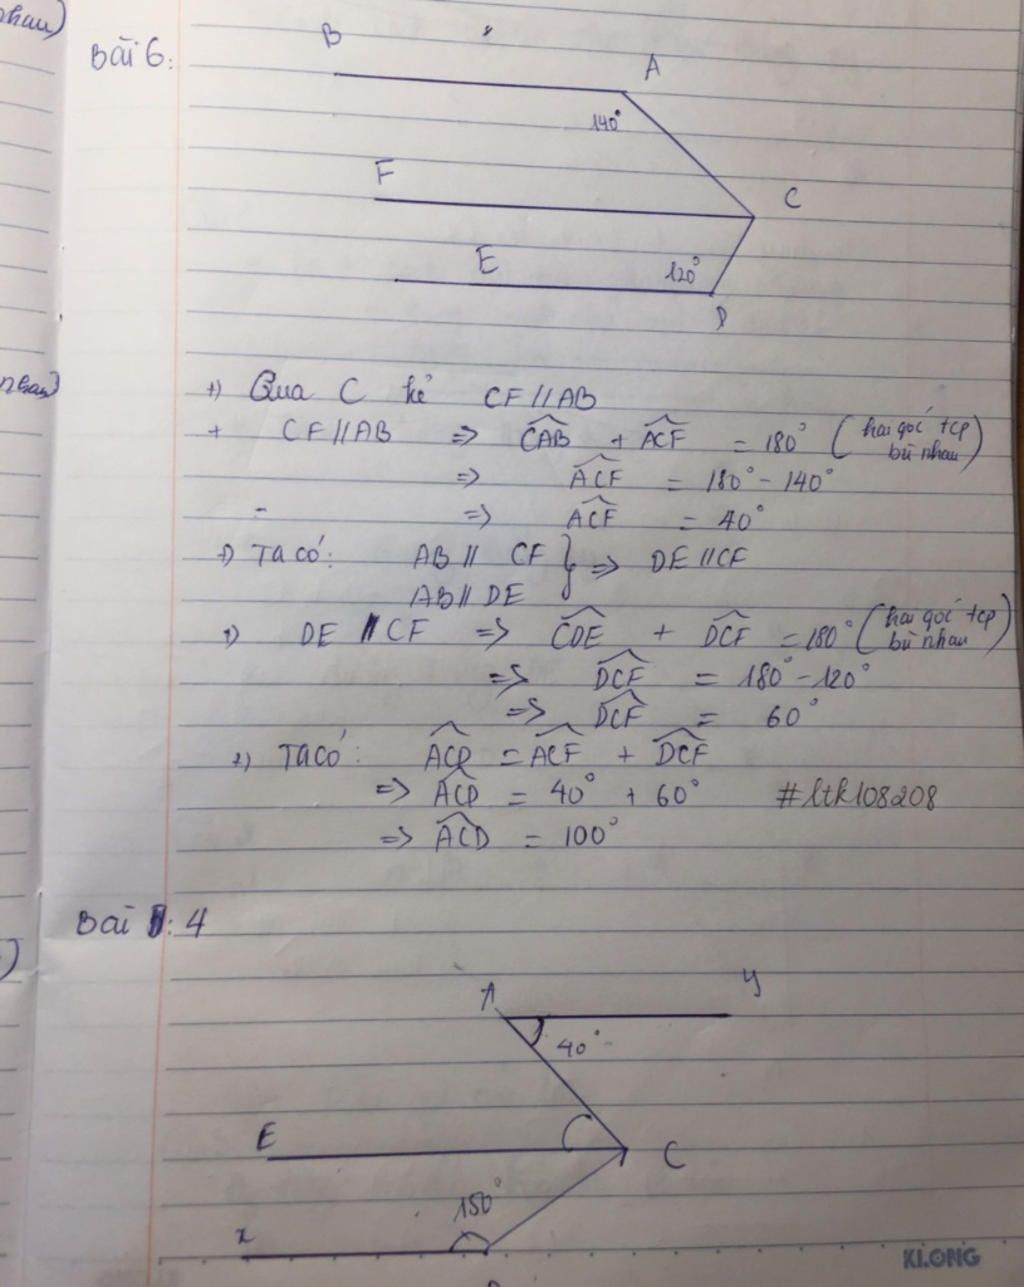 nhau)
Bài 6:
B
A
140°
F
C
E
120°
D
nhau)
+) Qua C kẻ CF // AB
+ CF // AB => CAB + ACF = 180° (hai góc tcp bù nhau)
=> ACF = 180° - 140°
=> ACF = 40°
+) Ta có: AB // CF } => DE // CF
AB // DE
+) DE // CF => CDE + DCF = 180° (hai góc tcp bù nhau)
=> DCF = 180° - 120°
=> DCF = 60°
+) Ta có: ACD = ACF + DCF
=> ACD = 40° + 60° #ltk108208
=> ACD = 100°
Bài : 4
A
y
40°
E
C
150°
x
KLONG